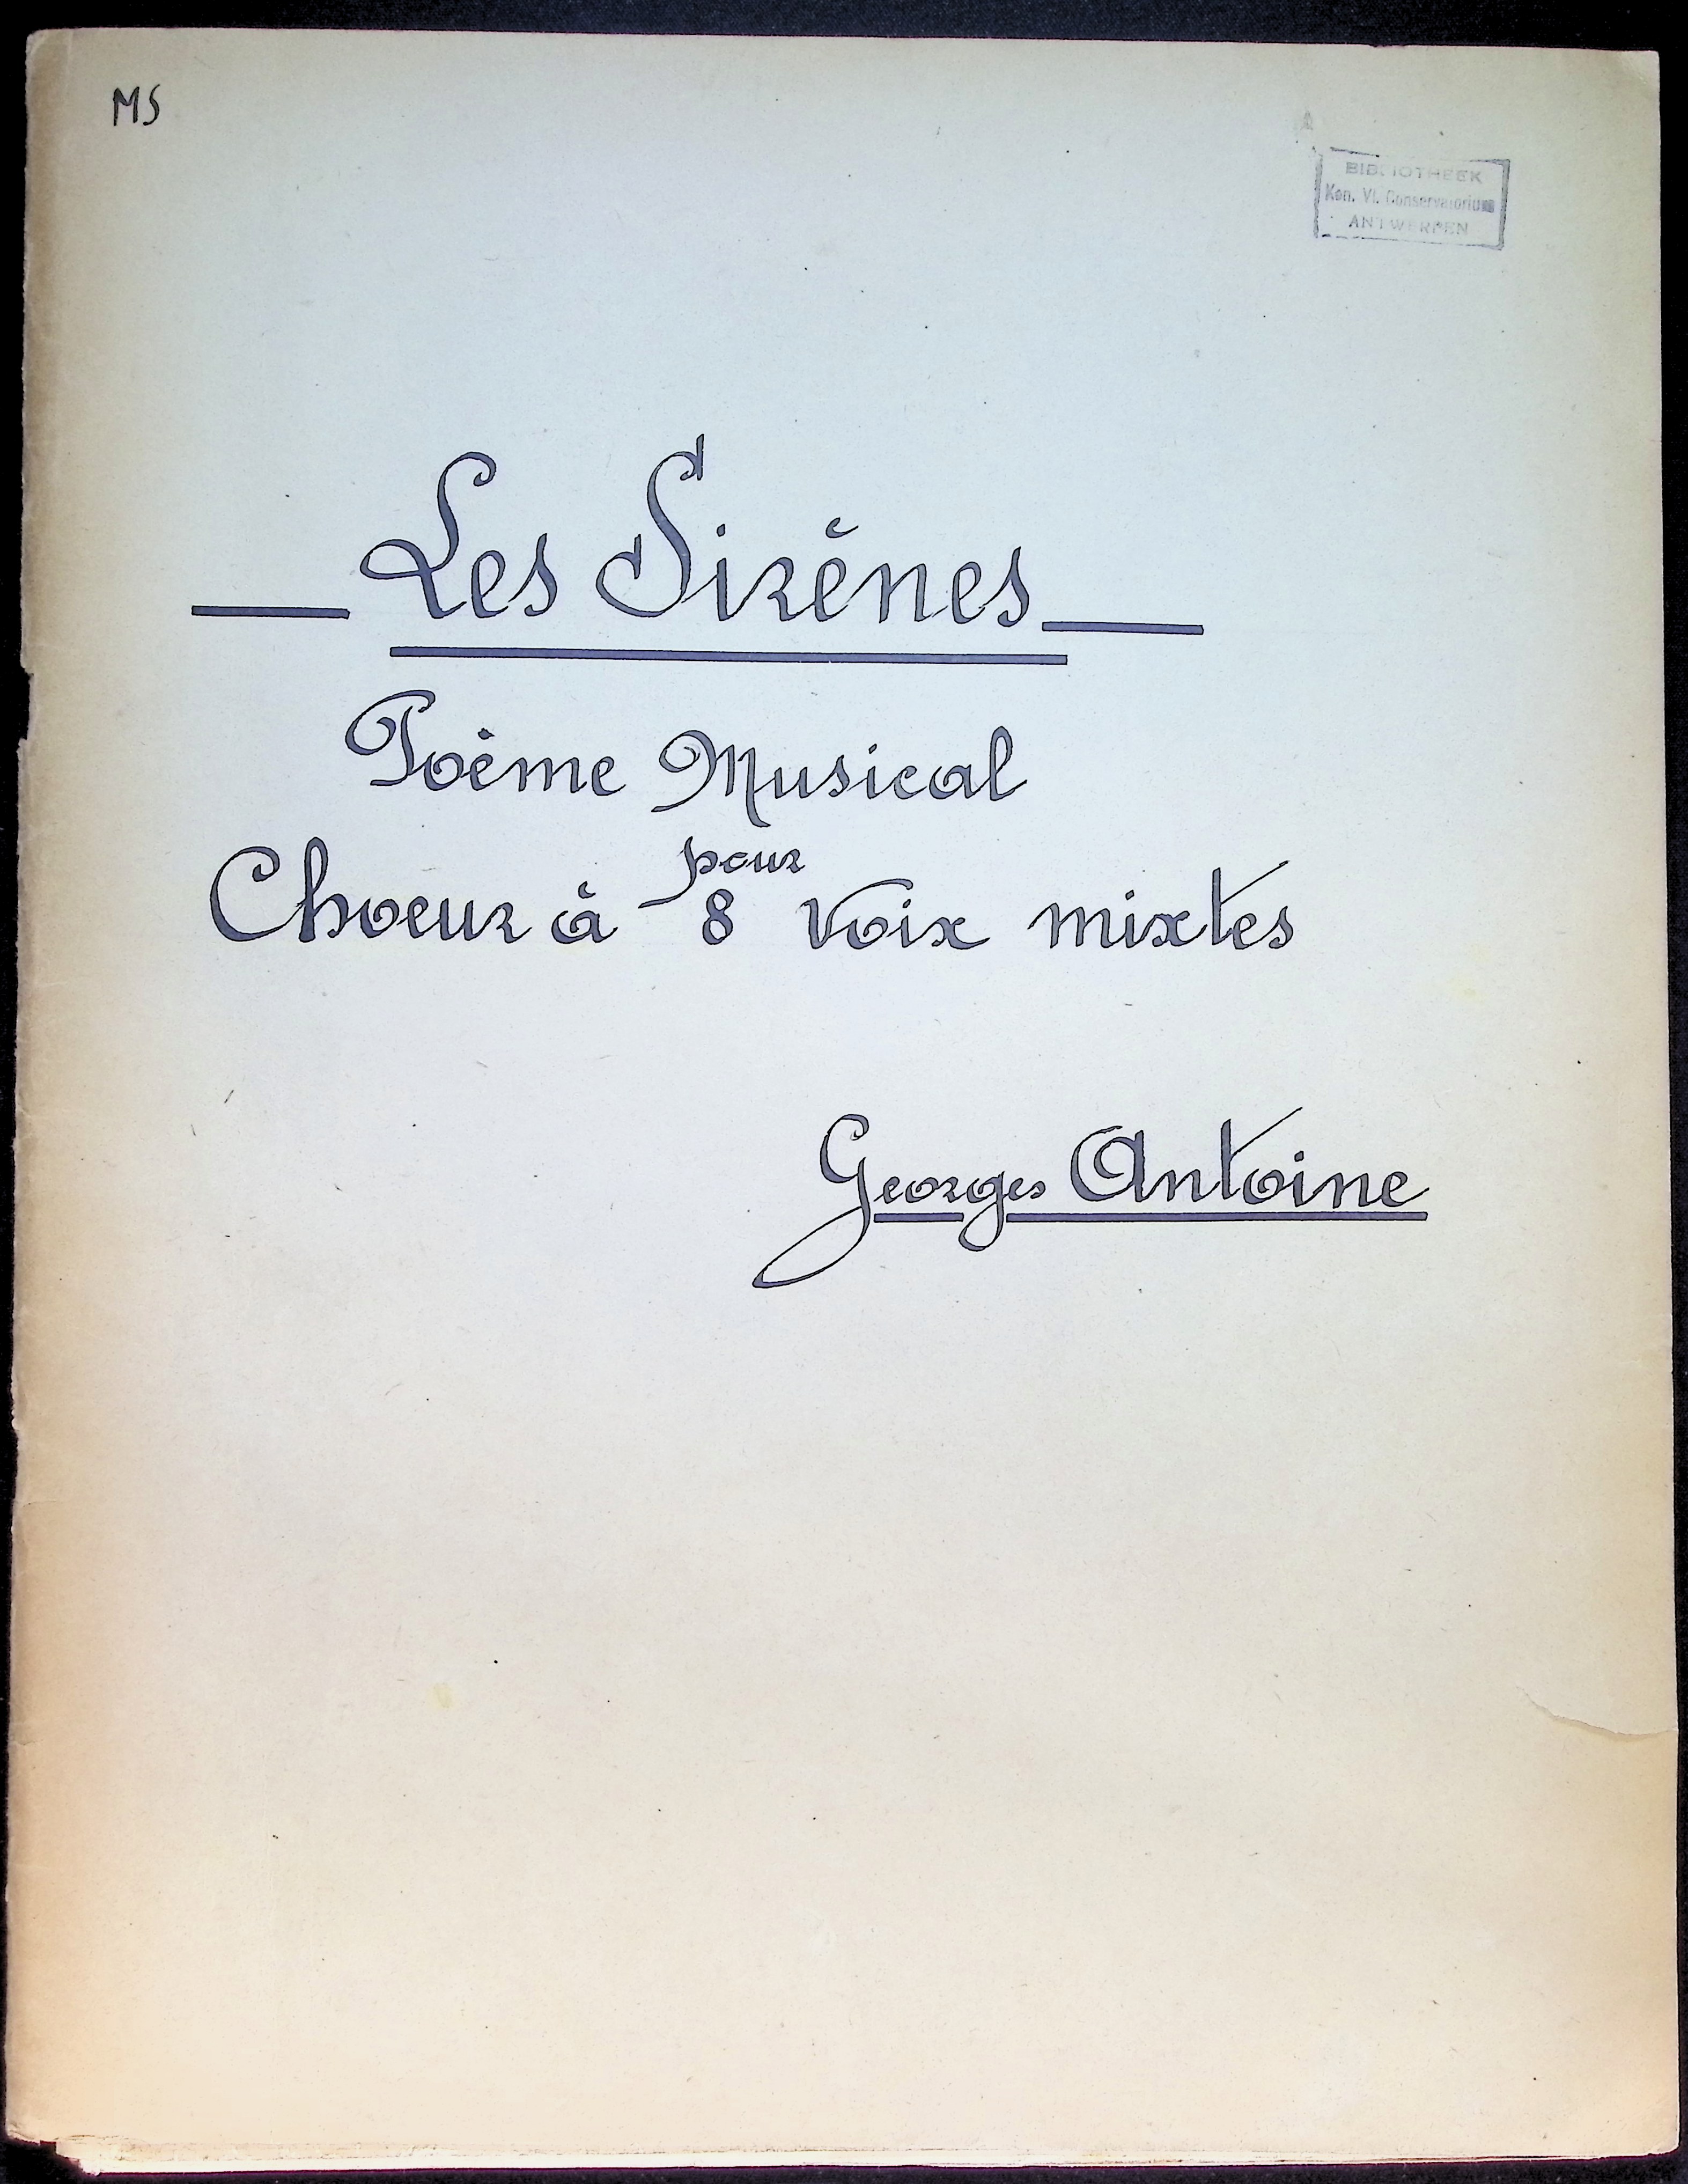 MS
BIBLIOTHEEK
Kon. Vl. Conservatorium
ANTWERPEN
Les Sirènes
Poème Musical
pour
Choeur à 8 voix mixtes
Georges Antoine